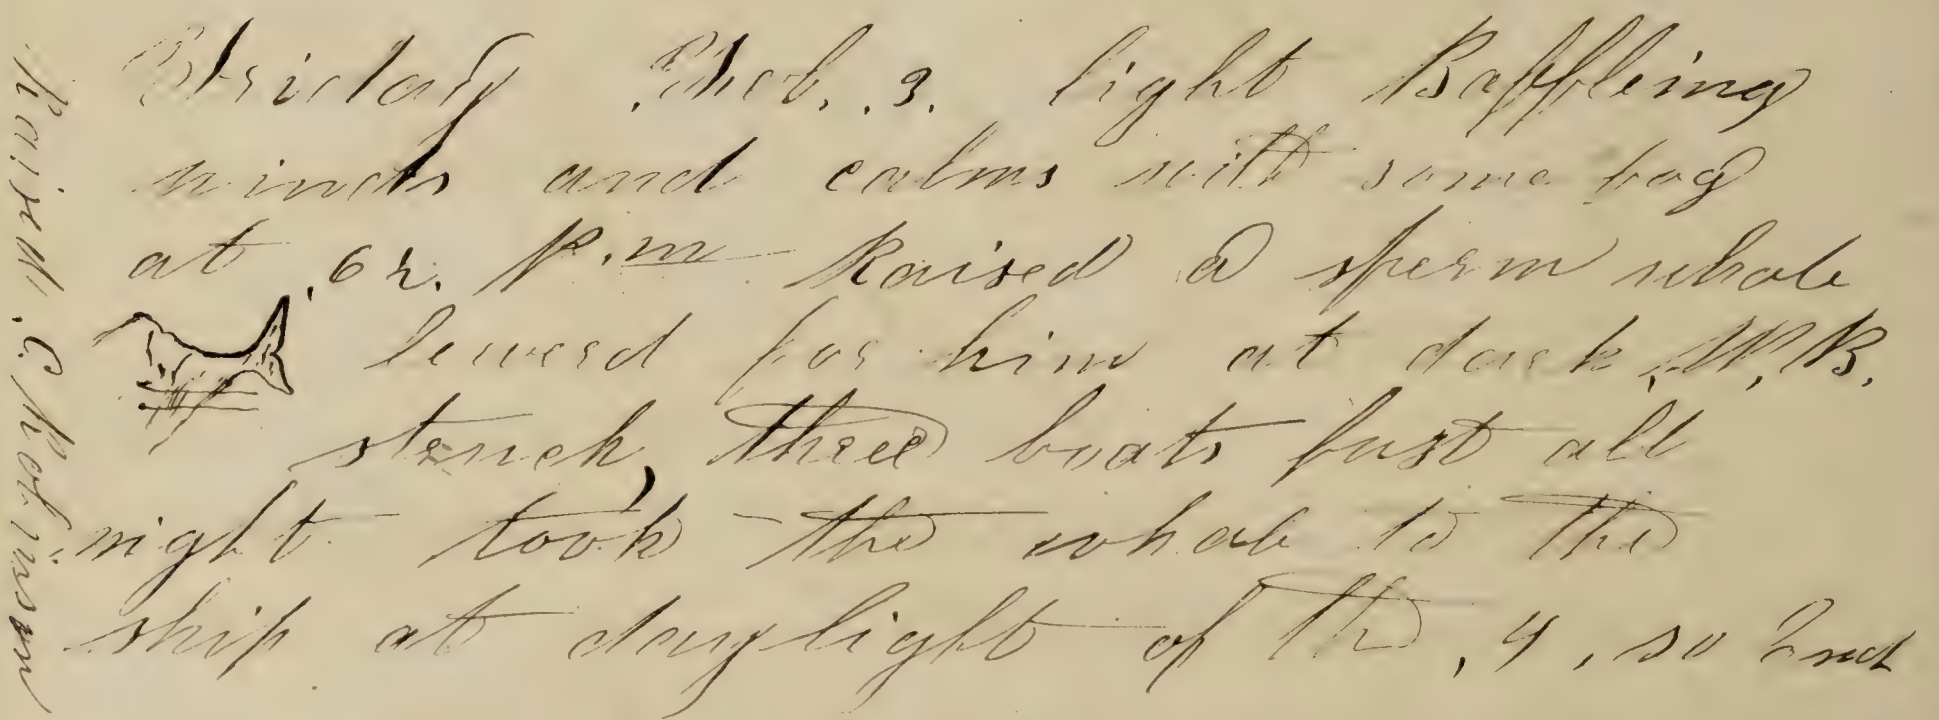 Friday Feb. 3. light Baffleing
winds and calms with some fog
at 6 P.m Raised a sperm whale
lowerd for him at dark,
struck, three boats fast all
night took the whale to the
ship at daylight of the 4, so End
Raised. C. Robinson